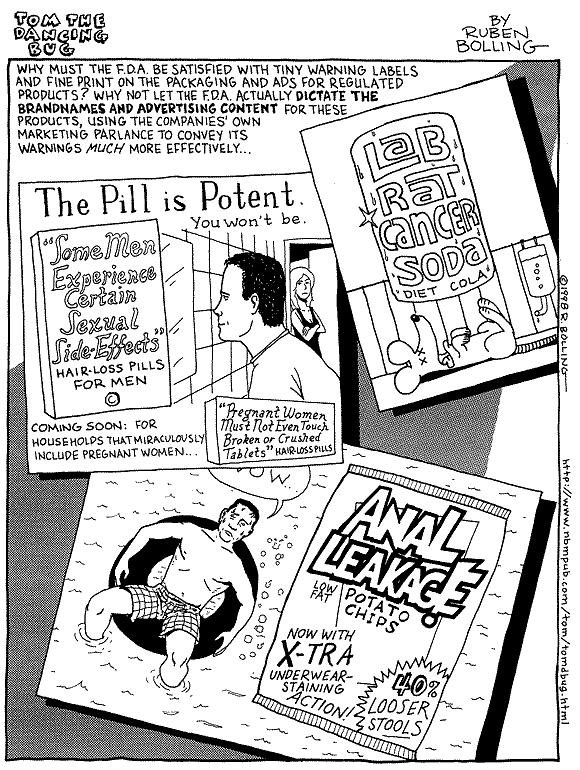 TOM THE
DANCING
BUG
BY
RUBEN
BOLLING
WHY MUST THE F.D.A. BE SATISFIED WITH TINY WARNING LABELS
AND FINE PRINT ON THE PACKAGING AND ADS FOR REGULATED
PRODUCTS? WHY NOT LET THE F.D.A. ACTUALLY DICTATE THE
BRANDNAMES AND ADVERTISING CONTENT FOR THESE
PRODUCTS, USING THE COMPANIES' OWN
MARKETING PARLANCE TO CONVEY ITS
WARNINGS MUCH MORE EFFECTIVELY...
The Pill is Potent.
You won't be.
"Some Men
Experience
Certain
Sexual
Side-Effects"
HAIR-LOSS PILLS
FOR MEN
©
COMING SOON: FOR
HOUSEHOLDS THAT MIRACULOUSLY
INCLUDE PREGNANT WOMEN...
"Pregnant Women
Must Not Even Touch
Broken or Crushed
Tablets" HAIR-LOSS PILLS
LaB
RaT
CaNCER
SODa
DIET COLA
©1998 R. BOLLING
ANAL
LEAKAGE
LOW
FAT
POTATO
CHIPS
NOW WITH
X-TRA
UNDERWEAR-
STAINING
ACTION!
40%
LOOSER
STOOLS
http://www.nbmpub.com/tom/tomdbug.html